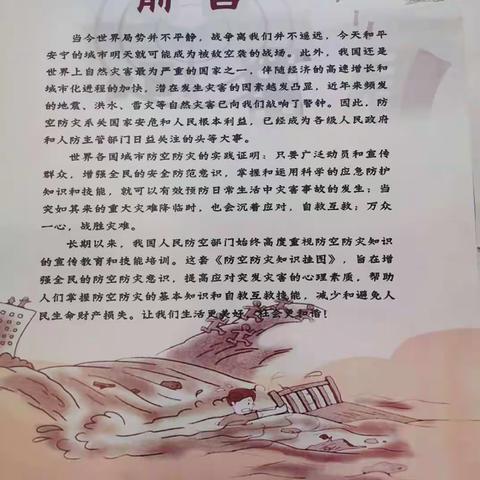 前言
当今世界局势并不平静，战争离我们并不遥远，今天和平
安宁的城市明天就可能成为被敌空袭的战场。此外，我国还是
世界上自然灾害最为严重的国家之一，伴随经济的高速增长和
城市化进程的加快，潜在发生灾害的因素越发凸显，近年来频发
的地震、洪水、雪灾等自然灾害已向我们敲响了警钟。因此，防
空防灾系关国家安危和人民根本利益，已经成为各级人民政府
和人防主管部门日益关注的头等大事。
世界各国城市防空防灾的实践证明：只要广泛动员和宣传
群众，增强全民的安全防范意识，掌握和运用科学的应急防护
知识和技能，就可以有效预防日常生活中灾害事故的发生；当
突如其来的重大灾难降临时，也会沉着应对，自救互救；万众
一心，战胜灾难。
长期以来，我国人民防空部门始终高度重视防空防灾知识
的宣传教育和技能培训。这套《防空防灾知识挂图》，旨在增
强全民的防空防灾意识，提高应对突发灾害的心理素质，帮助
人们掌握防空防灾的基本知识和自救互救技能，减少和避免人
民生命财产损失。让我们生活更美好，社会更和谐！